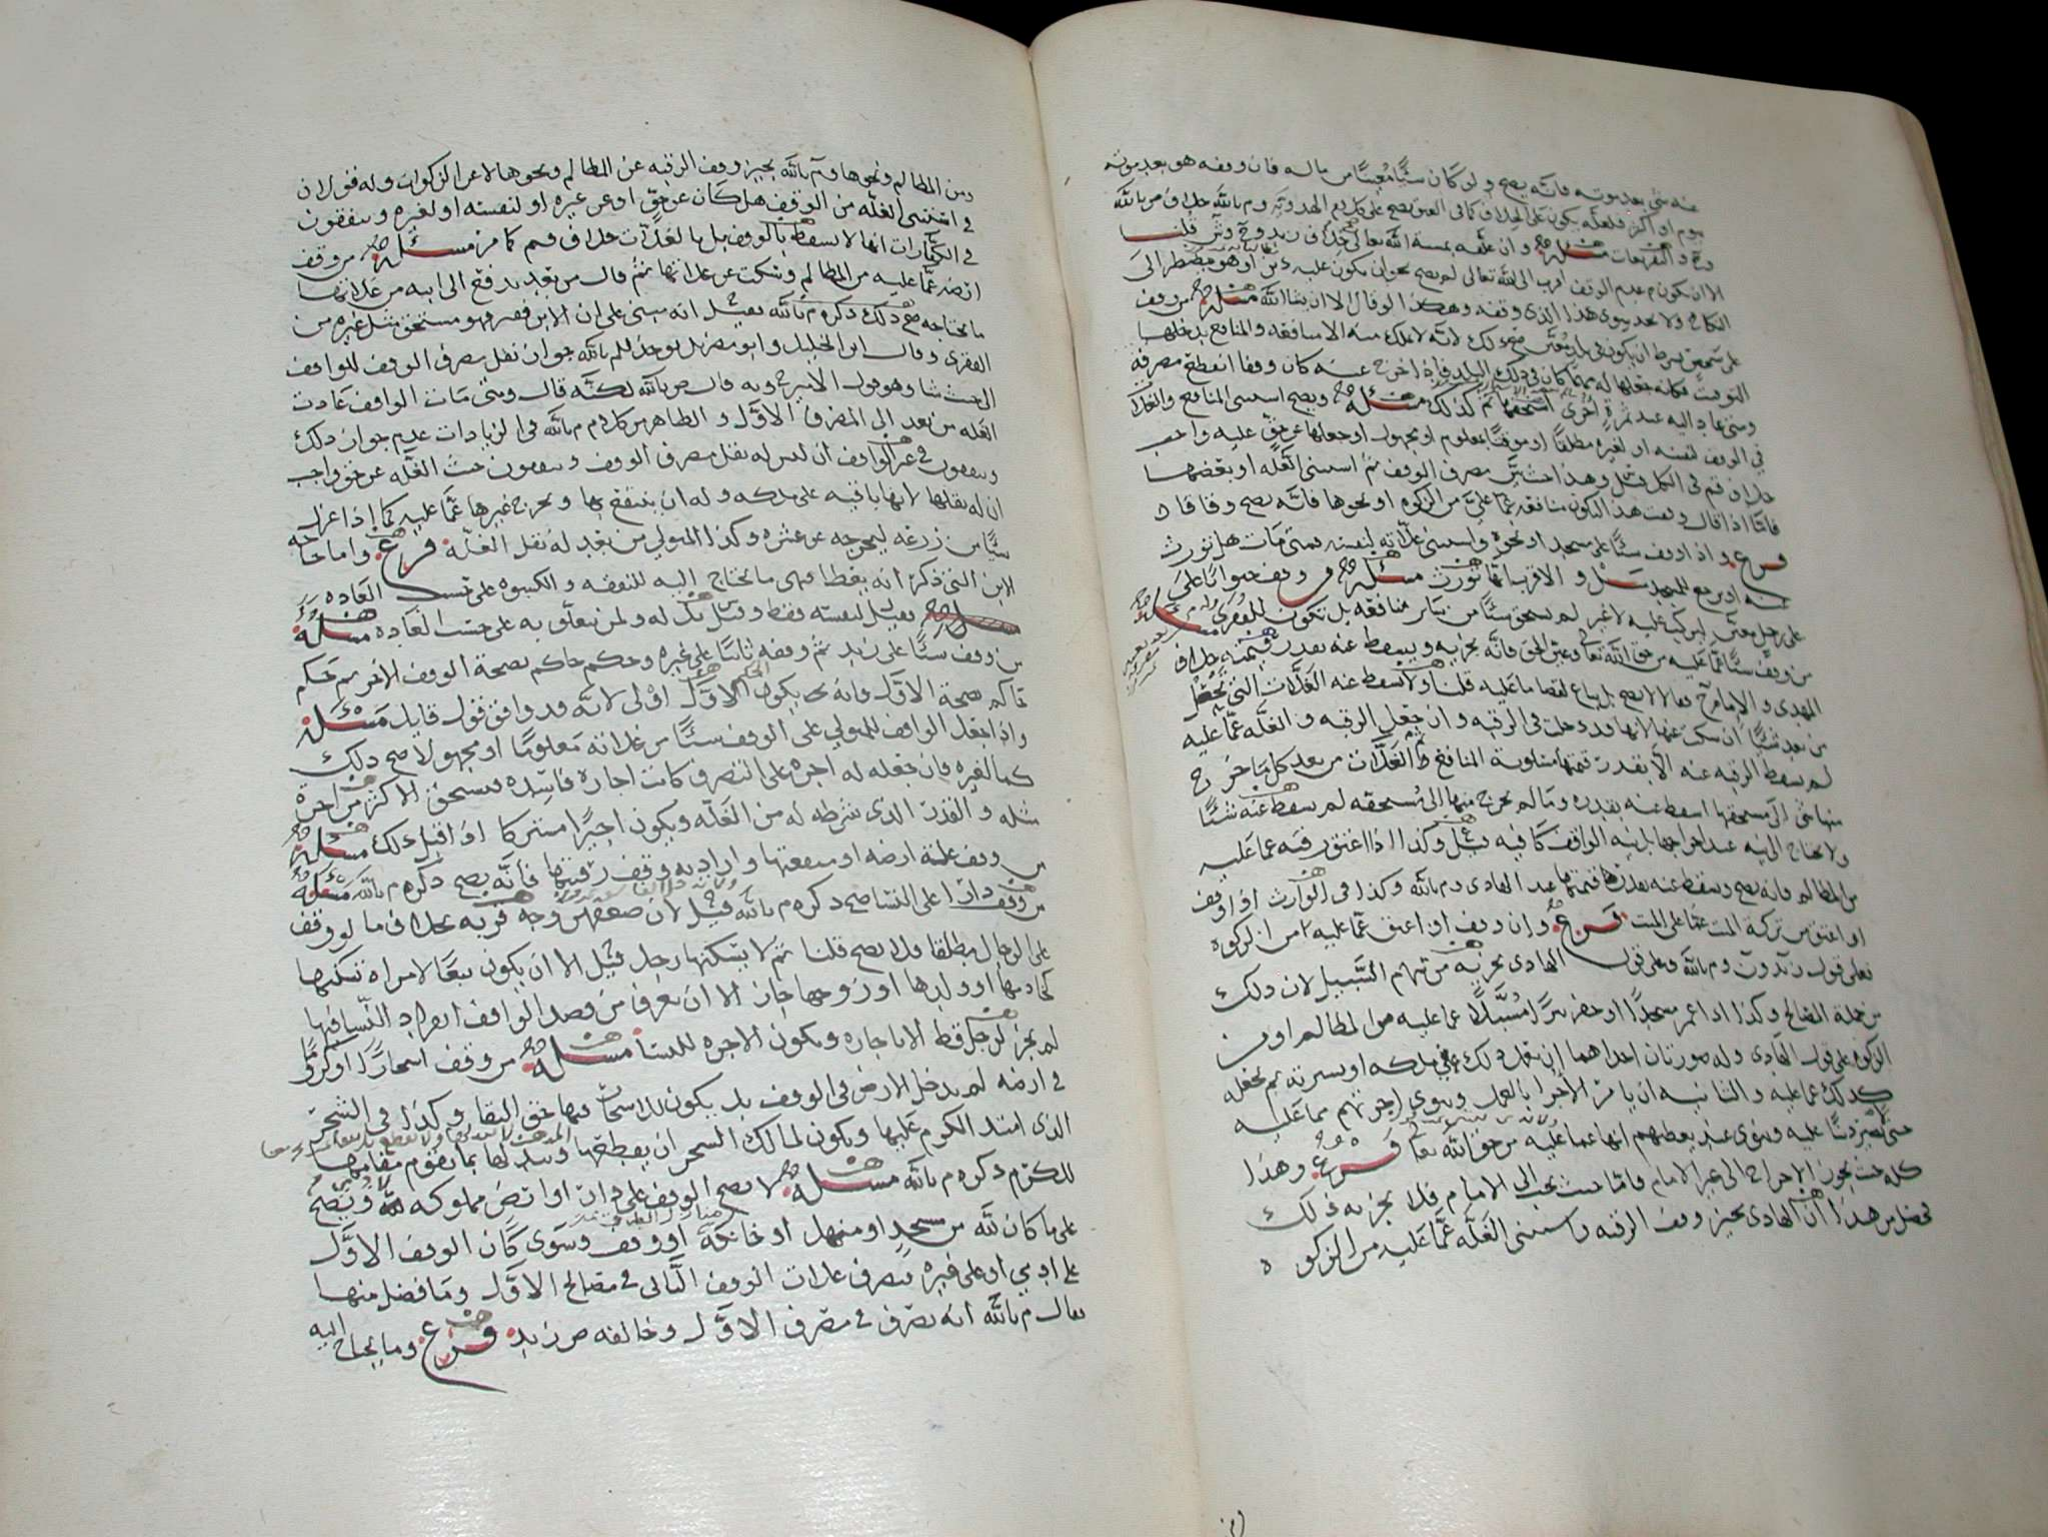 عنه شي بعد موته فانه يصح ولو كان شيًا معينًا من ماله فان وقفه هو بعد موته
بيوم او اكثر فلعله يكون على الخلاف كما في العتق يصح على كلام الهدويه وم بالله خلاف ص بالله
وح و الفقهات مسئله وان علقه بمسه الله تعالى خلاف زيد وح وش قلنا
الا ان يكون عدم الوقف اقرب الى الله تعالى لم يصح نحو ان يكون عليه دين او هو مضطر الى
النكاح ولا يجد سوى هذا الذي وقفه وهكذا لو قال الا ان يشا الله مسئله من وقف
على شخص بشرط ان يكون في بلد معين صح ذلك لانه لا يملك منه الا منافعه والمنافع يدخلها
التوقيت فكانه جعلها له مهما كان في ذلك البلد فاذا خرج عنه كان وقفا انقطع مصرفه
ومتى عاد اليه عند ثمرة اخرى استحقها ثم كذلك مسئله ويصح استثنى المنافع والغلات
في الوقف لنفسه او لغيره مطلقًا او موقتًا بمعلوم او مجهول او جعلها عن حق عليه واجب
خلاف م في الكل قيل وهذا حيث بين مصرف الوقف ثم استثنى الغله او بعضها
فاما اذا قال وقفت هذا لتكون منافعه عما علي من الزكوه او نحوها فانه يصح وفاقا
فرع واذا وقف شيًا على مسجد او نحوه واستثنى غلاته لنفسه فمتى مات هل تورث
عنه او يرجع للمسجد سل والاقرب انها تورث مسئله من وقف حيوانًا على
على رجل معين ليركب عليه لا غير لم يستحق شيًا من سائر منافعه بل تكون للفقرى مسئله
من وقف شيًا عما عليه من حق الله تعالى وعين الحق فانه يجزيه ويسقط عنه بقدر قيمته خلاف
المهدي والامام ح فقالا لا يصح بل يباع لقضا ما عليه قلنا ولا تسقط عنه الغلات التي تحصل
من بعد شيًا ان سكت عنها لانها قد دخلت في الرقبه وان جعل الرقبه والغله عما عليه
لم يسقط الرقبه عنه الا بقدر قيمتها مسلوبة المنافع و الغلات من بعد كل ما خرج
منها شي الى مستحقها اسقط عنه بقدره وما لم يخرج منها الى مستحقه لم يسقط عنه شيًا
ولا يحتاج الى نيه عند اخراجها بل نية الواقف كافيه قيل وكذا اذا اعتق رقبه عما عليه
من المظالم فانه يصح ويسقط عنه بقدر قيمتها عند الهادي وم بالله وكذا في الوارث اذا وقف
او اعتق من تركة الميت عما على الميت فرع وان وقف او اعتق عما عليه من الزكوه
فعلى قول زيد وم بالله وعلى قول الهادي يجزيه من سهم السبيل لان ذلك
من جملة المصالح وكذا اذا عمر مسجدًا او حفر بيرًا مسبلًا عما عليه من المظالم او من
الزكوه على قول الهادي وله صورتان احداهما ان يفعل ذلك في ملكه او يشتريه ثم يجعله
كذلك عما عليه والثانيه ان يامر الاجرا بالعمل وينوي اجرتهم مما عليه
حتى تصير دينًا عليه وينوي عند يعطيهم انها عما عليه من حق الله تعالى فرع وهذا
كله حيث يجوز الاخراج الى غير الامام فاما حيث يجب الى الامام فلا يجزيه ذلك
فحصل من هذا ان الهادي يجيز وقف الرقبه واستثنى الغله عما عليه من الزكوه
ومن المظالم ونحوها وم بالله يجيز وقف الرقبه عن المظالم ونحوها لا عن الزكوات وله قولان
في استثنى الغله من الوقف هل كان عن حق او عن غيره او لنفسه او لغيره ويتفقون
في الكفارات انها لا تسقط بالوقف بل بالغلات خلاف م كما مر مسئله من وقف
ارضه عما عليه من المظالم وسكت عن غلاتها ثم قال من بعد يدفع الى ابنه من غلاتها
ما يحتاجه صح ذلك ذكره م بالله فقيل انه مبني على ان الابن فقير فهو مستحق مثل غيره من
الفقرى وقال ابن الخليل وابو مضر بل يوخذ للم بالله جواز نقل مصرف الوقف للواقف
الى حيث شا وهو قول الامير ح وبه قال ص بالله لكنه قال ومتى مات الواقف عادت
الغله من بعد الى المصرف الاول والظاهر من كلام م بالله في الزيادات عدم جواز ذلك
ويتفقون في غير الواقف ان ليس له نقل مصرف الوقف ويتفقون حيث الغله عن حق واجب
ان له ينقلها لانها باقيه على ملكه وله ان ينتفع بها ويخرج غيرها عما عليه كما اذا عزل
شيًا من زرعه ليخرجه عن عشره وكذا المتولي من بعد له نقل الغله فرع واما حاجه
الابن التي ذكر انه يعطا فهي ما يحتاج اليه للنفقه والكسوه على حسب العاده
فقيل لنفسه فقط وقيل بل له ولمن يتعلق به على حسب العاده مسئله
من وقف شيًا على زيد ثم وقفه ثانيًا على غيره وحكم حاكم بصحة الوقف الاخر ثم حكم
حاكم بصحة الاول فانه يكون الحكم الاول اولى لانه قد وافق قول قايل مسئله
واذا جعل الواقف للمتولي على الوقف شيًا من غلاته معلومًا او مجهولا صح ذلك
كما لغيره فان جعله له اجره على التصرف كانت اجارة فاسده فيستحق الاكثر من اجره
مثله و القدر الذي شرطه له من الغله ويكون اجيرًا مشتركا او اقبل ذلك مسئله
من وقف غلة ارضه او منفعتها واراد به وقف رقبتها فانه يصح ذكره م بالله مسئله
من وقف دارًا على النسا صح ذكره م بالله قيل لان ضعفهن وجه قربه بخلاف ما لو وقف
على الرجال مطلقا فلا يصح قلنا ثم لا يسكنها رجل قيل الا ان يكون تبعًا لامراه تسكنها
كخادمها او ولدها او زوجها جاز الا ان يعرف من قصد الواقف انفراد النسا فيها
لم يجز لرجل قط الا باجاره وتكون الاجره للنسا مسئله من وقف اشجارًا او كرومًا
في ارضه لم يدخل الارض في الوقف بل يكون للاشجار فيها حق البقا وكذا في الشجر
الذي امتد الكروم عليها ويكون لمالك الشجر ان يقطعها ويبدلها بما يقوم مقامها
للكرم ذكره م بالله مسئله لا يصح الوقف على دار او ارض مملوكه ويصح
على ما كان لله من مسجد او منهل او خانكة او وقف وسوى كان الوقف الاول
على ادمي او على غيره فتصرف غلات الوقف الثاني في مصالح الاول وما فضل منها
فقال م بالله انه يصرف في مصرف الاول وخالفه ص زيد فرع وما يحتاج اليه